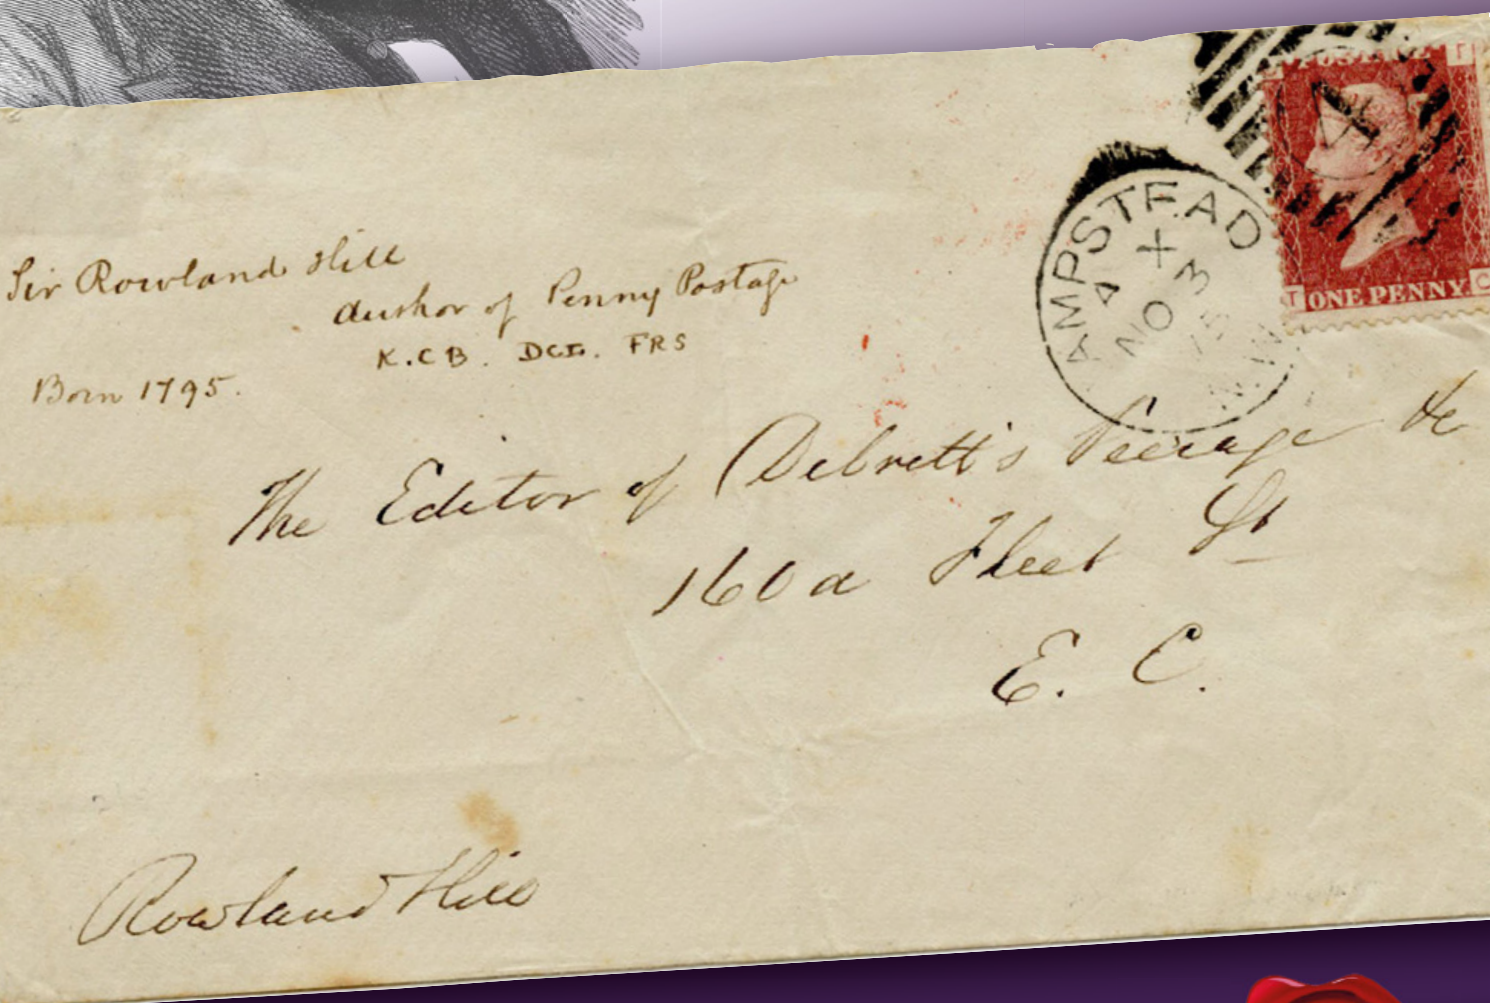 Sir Rowland Hill
Author of Penny Postage
K.C.B. DCL. FRS
Born 1795.
POSTAGE
T ONE PENNY C
AMPSTEAD
X
4
NO 3
75
N.W
The Editor of Debrett's Peerage &c
160a Fleet St
E. C.
Rowland Hill